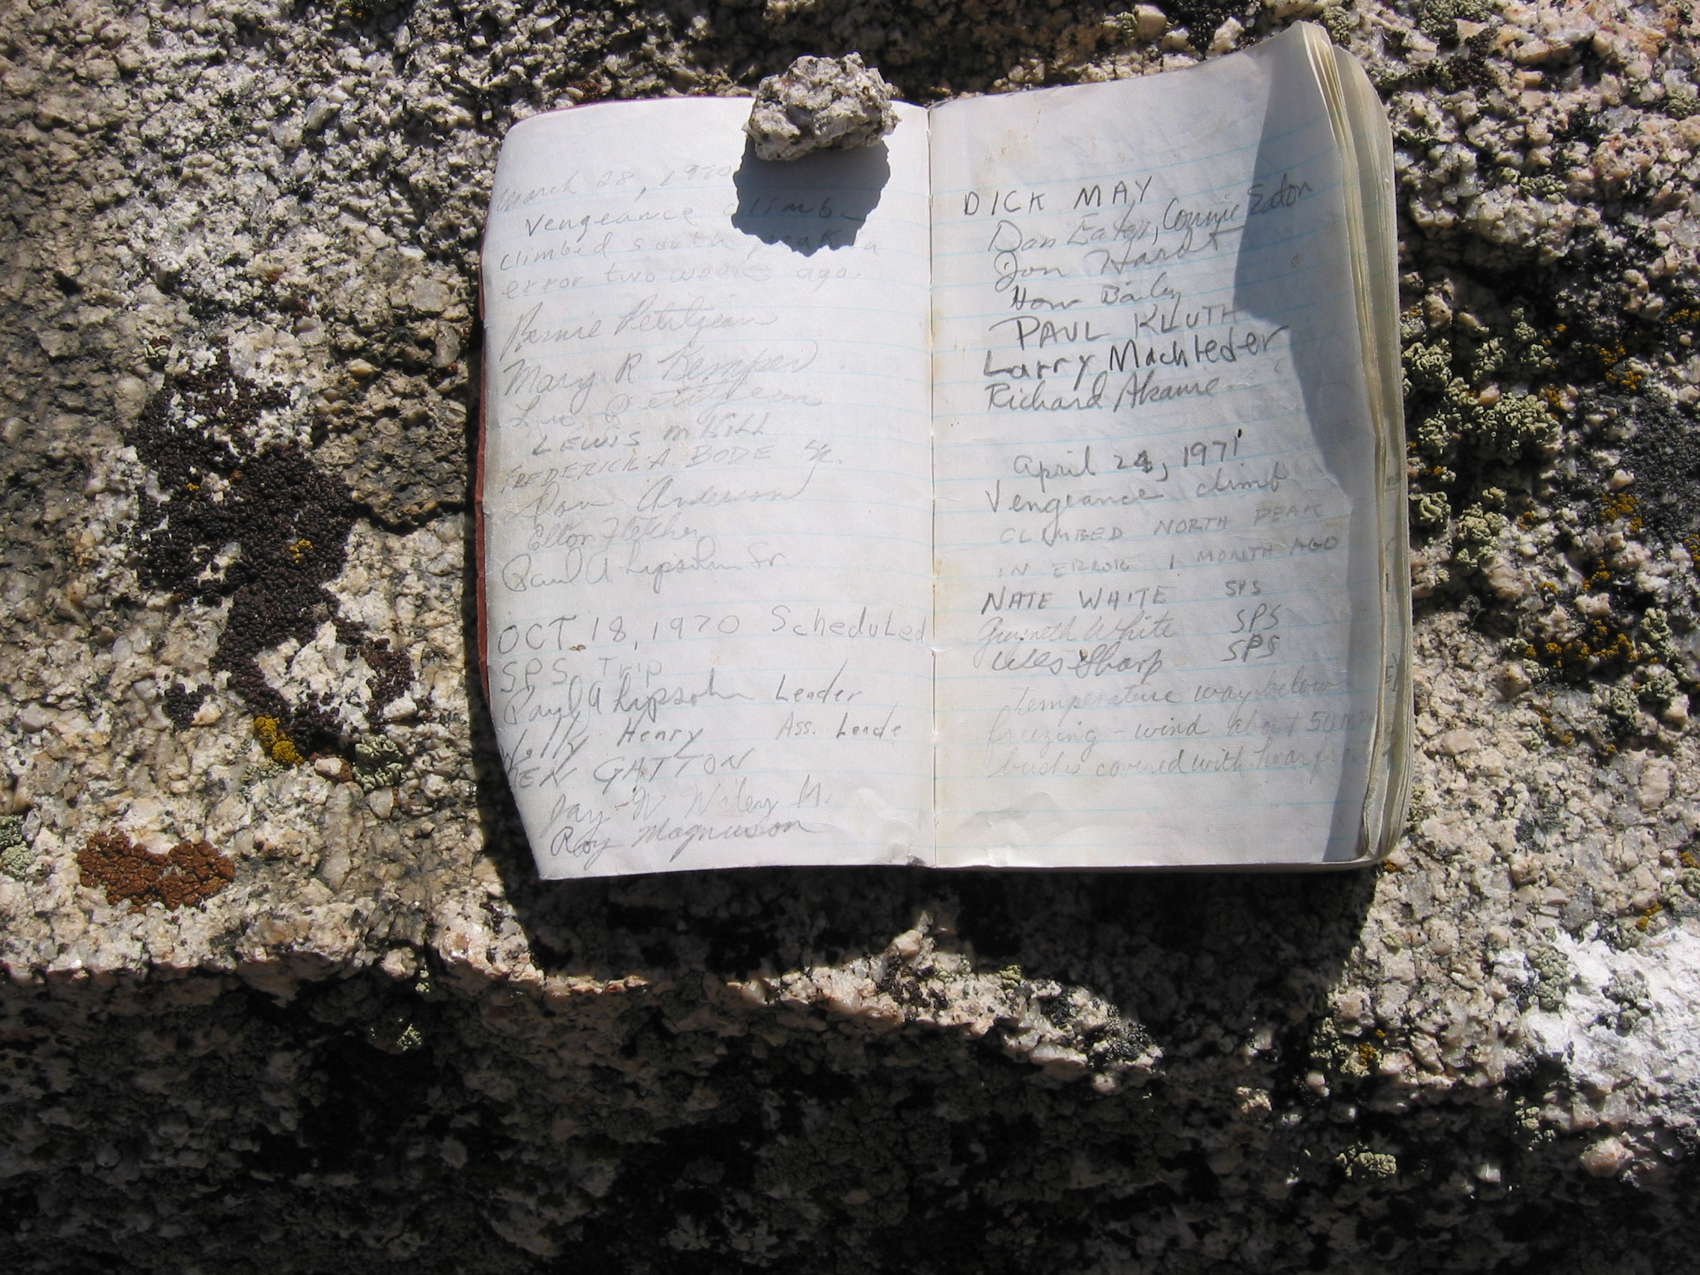 March 28, 1970
Vengeance climb
climbed south peak in
error two weeks ago.
Bernie Petitjean
Mary R Kemper
Petitjean
LEWIS
FREDERICK A. BODE Sr.
Don Anderson
Elton Fletcher
Paul A Lipsohn Sr.
OCT. 18, 1970 Scheduled
SPS Trip
Paul A Lipsohn Leader
Wally Henry Ass. Leade
KEN GATTON
Jay W
Roy Magnuson
DICK MAY
Dan Eaton, Connie Eaton
Jon
Bailey
PAUL KLUTH
Larry Machleder
Richard
April 24, 1971
Vengeance climb
CLIMBED NORTH PEAK
IN ERROR 1 MONTH AGO
NATE WHITE SPS
Gwyneth White SPS
Wes Sharp SPS
Temperature way below
freezing - wind about 50
covered with hoar